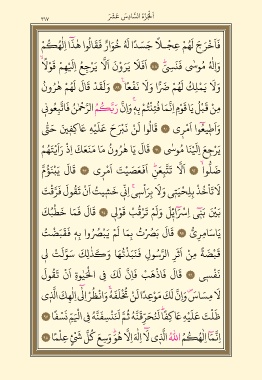 الجزء السادس عشر
٣١٧
فَأَخْرَجَ لَهُمْ عِجْلًا جَسَدًا لَهُ خُوَارٌ فَقَالُوا هٰذَٓا اِلٰهُكُمْ
وَاِلٰهُ مُوسٰى فَنَسِيَ ﴿٨٨﴾ اَفَلَا يَرَوْنَ اَلَّا يَرْجِعُ اِلَيْهِمْ قَوْلًا
وَلَا يَمْلِكُ لَهُمْ ضَرًّا وَلَا نَفْعًا ﴿٨٩﴾ وَلَقَدْ قَالَ لَهُمْ هٰرُونُ
مِنْ قَبْلُ يَا قَوْمِ اِنَّمَا فُتِنْتُمْ بِهِ وَاِنَّ رَبَّكُمُ الرَّحْمٰنُ فَاتَّبِعُونِي
وَاَطِيعُٓوا اَمْرِي ﴿٩٠﴾ قَالُوا لَنْ نَبْرَحَ عَلَيْهِ عَاكِفِينَ حَتّٰى
يَرْجِعَ اِلَيْنَا مُوسٰى ﴿٩١﴾ قَالَ يَا هٰرُونُ مَا مَنَعَكَ اِذْ رَاَيْتَهُمْ
ضَلُّوا ﴿٩٢﴾ اَلَّا تَتَّبِعَنِ اَفَعَصَيْتَ اَمْرِي ﴿٩٣﴾ قَالَ يَبْنَؤُمَّ
لَا تَأْخُذْ بِلِحْيَتِي وَلَا بِرَأْسِي اِنِّي خَشِيتُ اَنْ تَقُولَ فَرَّقْتَ
بَيْنَ بَنِٓي اِسْرَٓائِيلَ وَلَمْ تَرْقُبْ قَوْلِي ﴿٩٤﴾ قَالَ فَمَا خَطْبُكَ
يَا سَامِرِيُّ ﴿٩٥﴾ قَالَ بَصُرْتُ بِمَا لَمْ يَبْصُرُوا بِهِ فَقَبَضْتُ
قَبْضَةً مِنْ اَثَرِ الرَّسُولِ فَنَبَذْتُهَا وَكَذٰلِكَ سَوَّلَتْ لِي
نَفْسِي ﴿٩٦﴾ قَالَ فَاذْهَبْ فَاِنَّ لَكَ فِي الْحَيٰوةِ اَنْ تَقُولَ
لَا مِسَاسَ وَاِنَّ لَكَ مَوْعِدًا لَنْ تُخْلَفَهُ وَانْظُرْ اِلٰٓى اِلٰهِكَ الَّذِي
ظَلْتَ عَلَيْهِ عَاكِفًا لَنُحَرِّقَنَّهُ ثُمَّ لَنَنْسِفَنَّهُ فِي الْيَمِّ نَسْفًا ﴿٩٧﴾
اِنَّمَٓا اِلٰهُكُمُ اللّٰهُ الَّذِي لَٓا اِلٰهَ اِلَّا هُوَ وَسِعَ كُلَّ شَيْءٍ عِلْمًا ﴿٩٨﴾